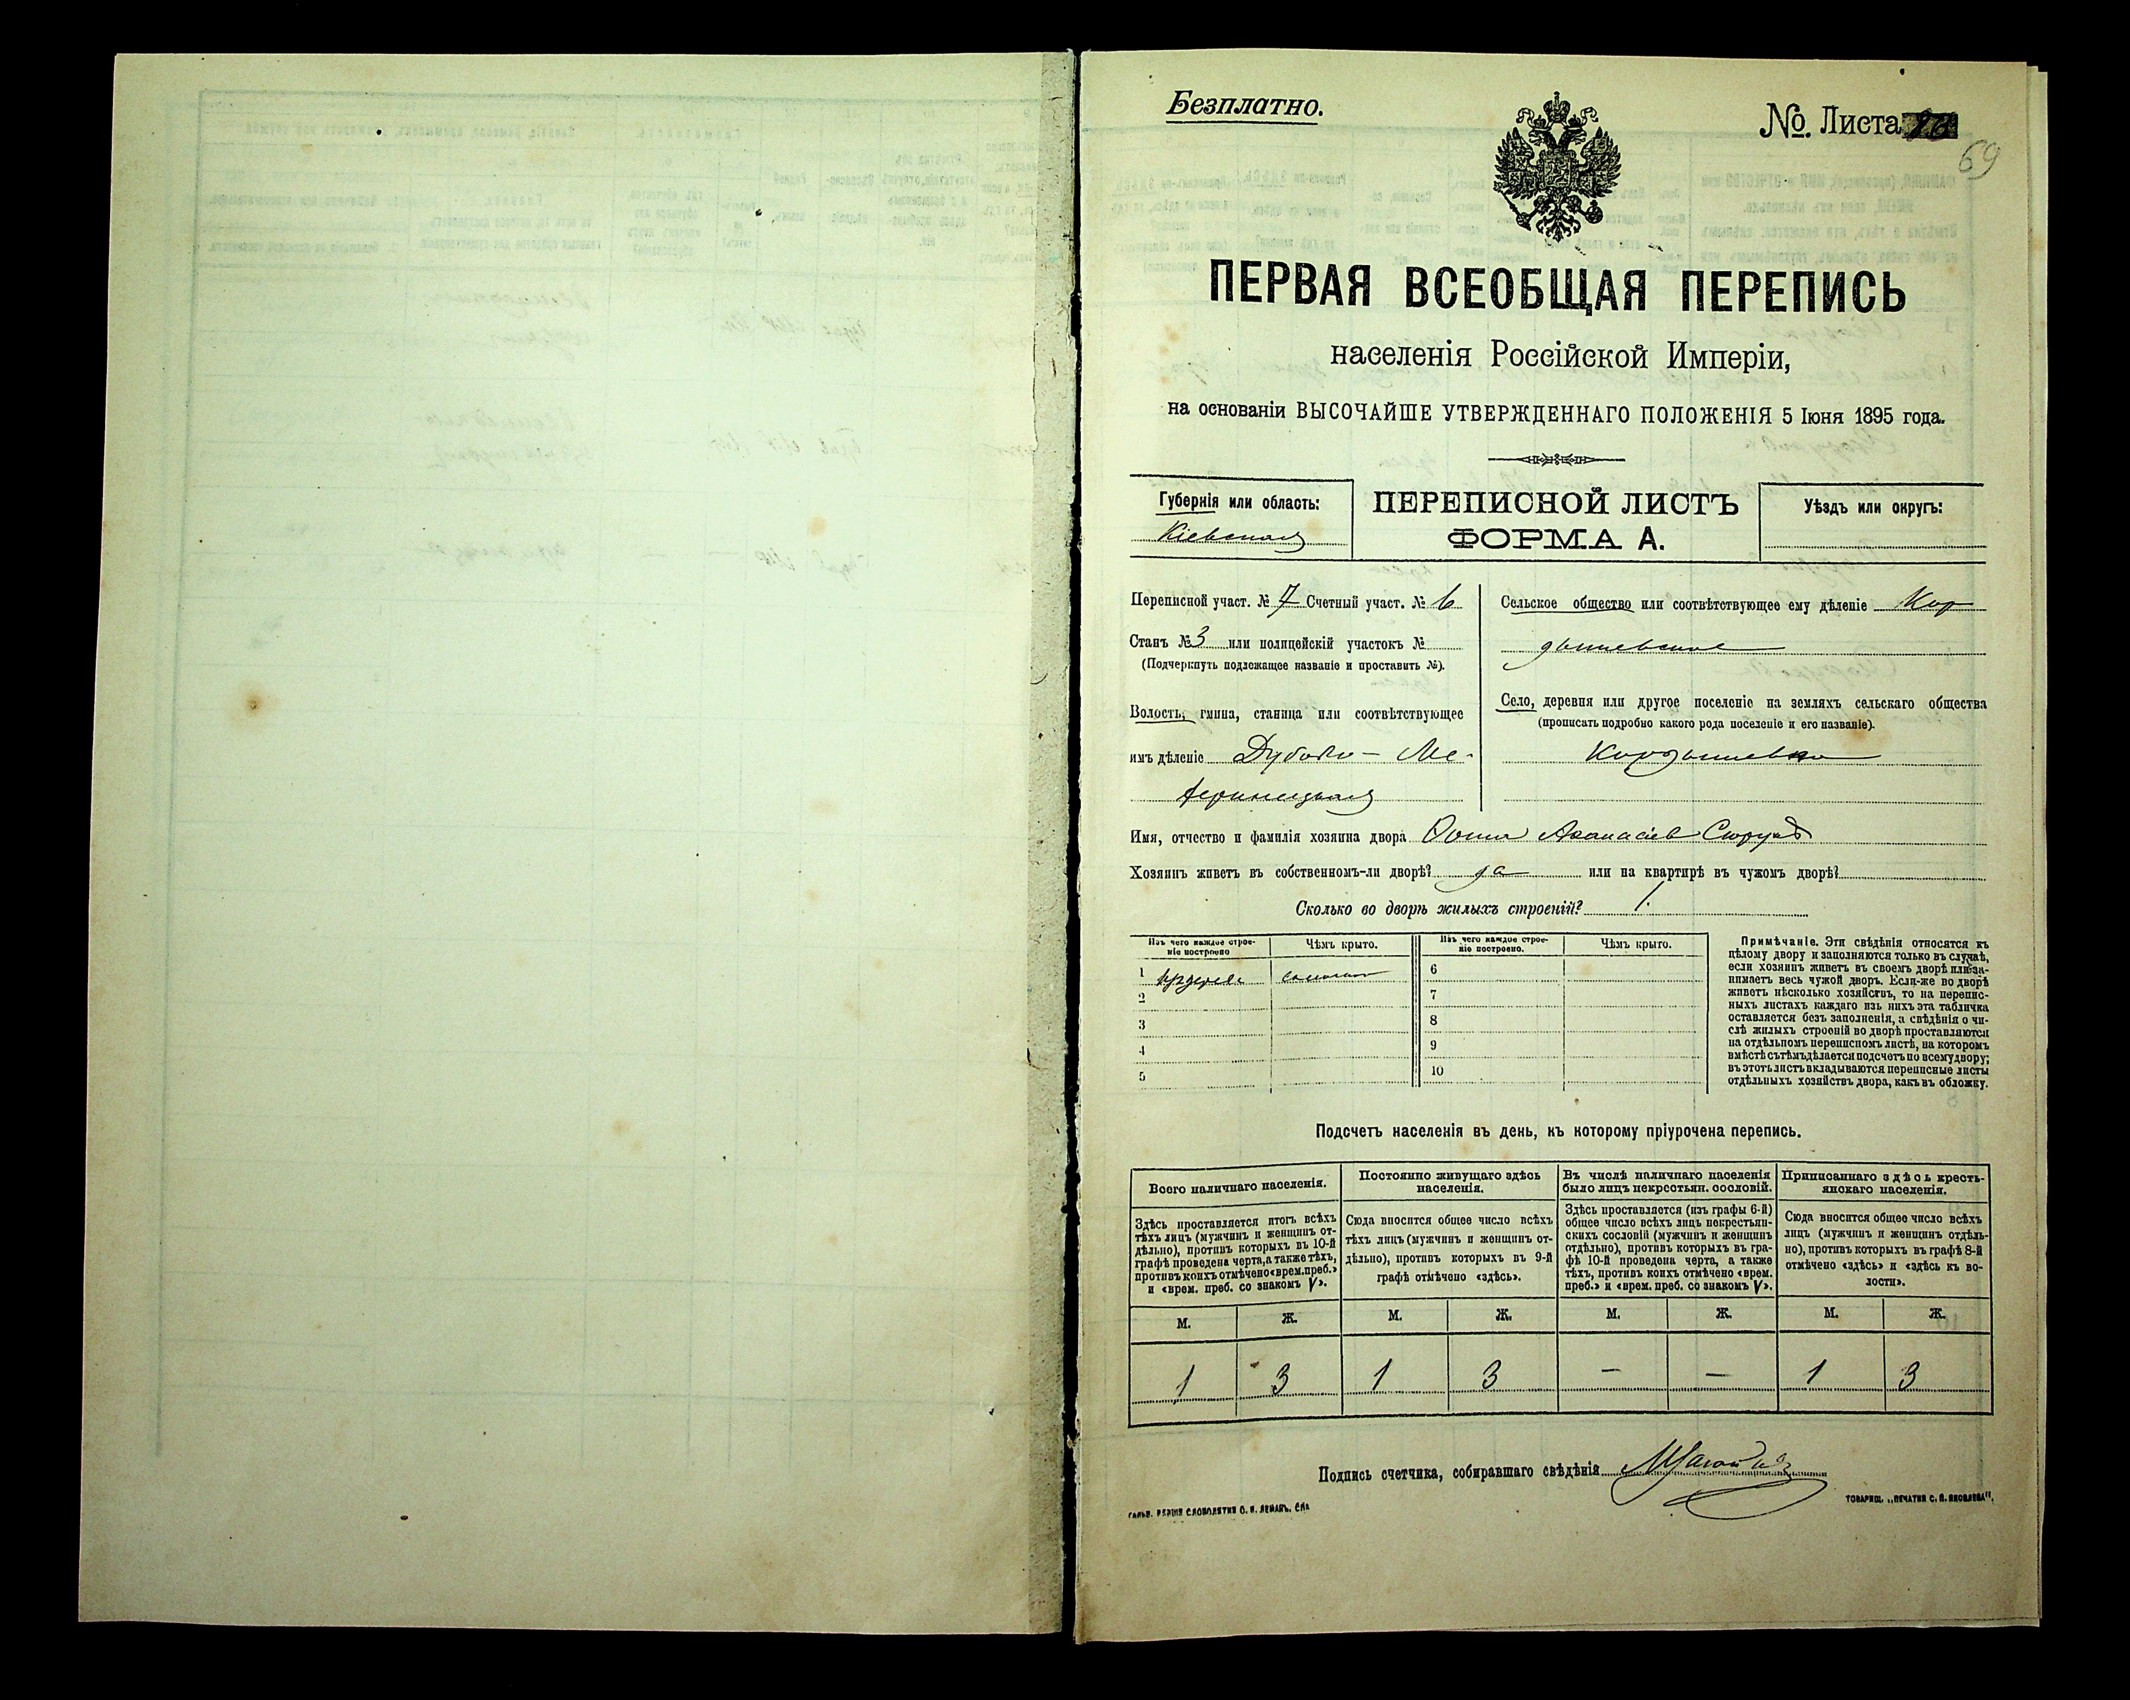 Безплатно.
№. Листа
69
ПЕРВАЯ ВСЕОБЩАЯ ПЕРЕПИСЬ
населенія Россійской Имперіи,
на основаніи ВЫСОЧАЙШЕ УТВЕРЖДЕННАГО ПОЛОЖЕНІЯ 5 Іюня 1895 года.
Губернія или область:
Кіевская
ПЕРЕПИСНОЙ ЛИСТЪ
ФОРМА А.
Уѣздъ или округъ:
Переписной участ. № 7 Счетный участ. № 6
Станъ № 3 или полицейскій участокъ №
(Подчеркнуть подлежащее названіе и проставить №).
Волость, гмина, станица или соотвѣтствующее
имъ дѣленіе Дубово-Ме-
жеринецкая
Сельское общество или соотвѣтствующее ему дѣленіе Кор
дышевское
Село, деревня или другое поселеніе на земляхъ сельскаго общества
(прописать подробно какого рода поселеніе и его названіе).
Кордышевка
Имя, отчество и фамилія хозяина двора Аѳанасіев
Хозяинъ живетъ въ собственномъ-ли дворѣ? да или на квартирѣ въ чужомъ дворѣ?
Сколько во дворѣ жилыхъ строеній? 1.
Изъ чего каждое строе-
ніе построено
Чѣмъ крыто.
Изъ чего каждое строе-
ніе построено.
Чѣмъ крыто.
1 изъ дерева соломою
2
3
4
5
6
7
8
9
10
Примѣчаніе. Эти свѣдѣнія относятся къ
цѣлому двору и заполняются только въ случаѣ,
если хозяинъ живетъ въ своемъ дворѣ или за-
нимаетъ весь чужой дворъ. Если-же во дворѣ
живетъ нѣсколько хозяйствъ, то на перепис-
ныхъ листахъ каждаго изъ нихъ эта табличка
оставляется безъ заполненія, а свѣдѣнія о чи-
слѣ жилыхъ строеній во дворѣ проставляются
на отдѣльномъ переписномъ листѣ, на которомъ
вмѣстѣ съ тѣмъ дѣлается подсчетъ по всему двору;
въ этотъ листъ вкладываются переписные листы
отдѣльныхъ хозяйствъ двора, какъ въ обложку.
Подсчетъ населенія въ день, къ которому пріурочена перепись.
Всего наличнаго населенія.
Здѣсь проставляется итогъ всѣхъ
тѣхъ лицъ (мужчинъ и женщинъ от-
дѣльно), противъ которыхъ въ 10-й
графѣ проведена черта, а также тѣхъ,
противъ коихъ отмѣчено «врем. преб.»
и «врем. преб. со знакомъ V».
Постоянно живущаго здѣсь
населенія.
Сюда вносится общее число всѣхъ
тѣхъ лицъ (мужчинъ и женщинъ от-
дѣльно), противъ которыхъ въ 9-й
графѣ отмѣчено «здѣсь».
Въ числѣ наличнаго населенія
было лицъ некрестьян. сословій.
Здѣсь проставляется (изъ графы 6-й)
общее число всѣхъ лицъ некрестьян-
скихъ сословій (мужчинъ и женщинъ
отдѣльно), противъ которыхъ въ гра-
фѣ 10-й проведена черта, а также
тѣхъ, противъ коихъ отмѣчено «врем.
преб.» и «врем. преб. со знакомъ V».
Приписаннаго здѣсь кресть-
янскаго населенія.
Сюда вносится общее число всѣхъ
лицъ (мужчинъ и женщинъ отдѣль-
но), противъ которыхъ въ графѣ 8-й
отмѣчено «здѣсь» и «здѣсь къ во-
лости».
М. Ж. М. Ж. М. Ж. М. Ж.
1 3 1 3 — — 1 3
Подпись счетчика, собиравшаго свѣдѣнія
ТОВАРИЩ. „ПЕЧАТНЯ С. П. ЯКОВЛЕВА".